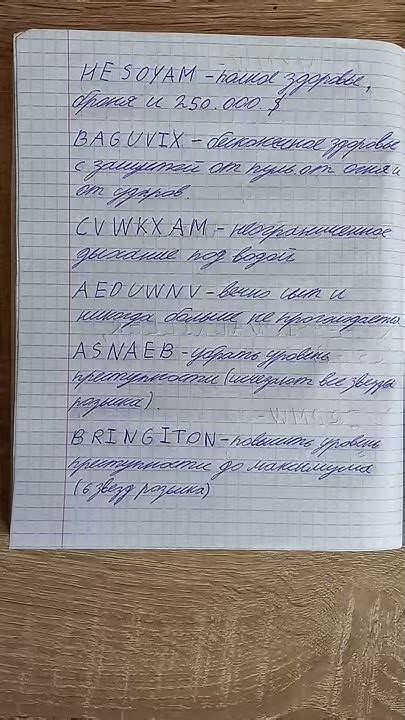 HESOYAM - полное здоровье,
броня и 250.000.$
BAGUVIX - бесконечное здоровье
с защитой от пуль от огня и
от ударов.
CVWKXAM - неограниченное
дыхание под водой
AEDUWNV - вечно сыт и
никогда больше не проголодается
ASNAEB - убрать уровень
преступности (
все звезды
розыска).
BRINGITON - повысить уровень
преступности до максимума
(6 звезд розыска)